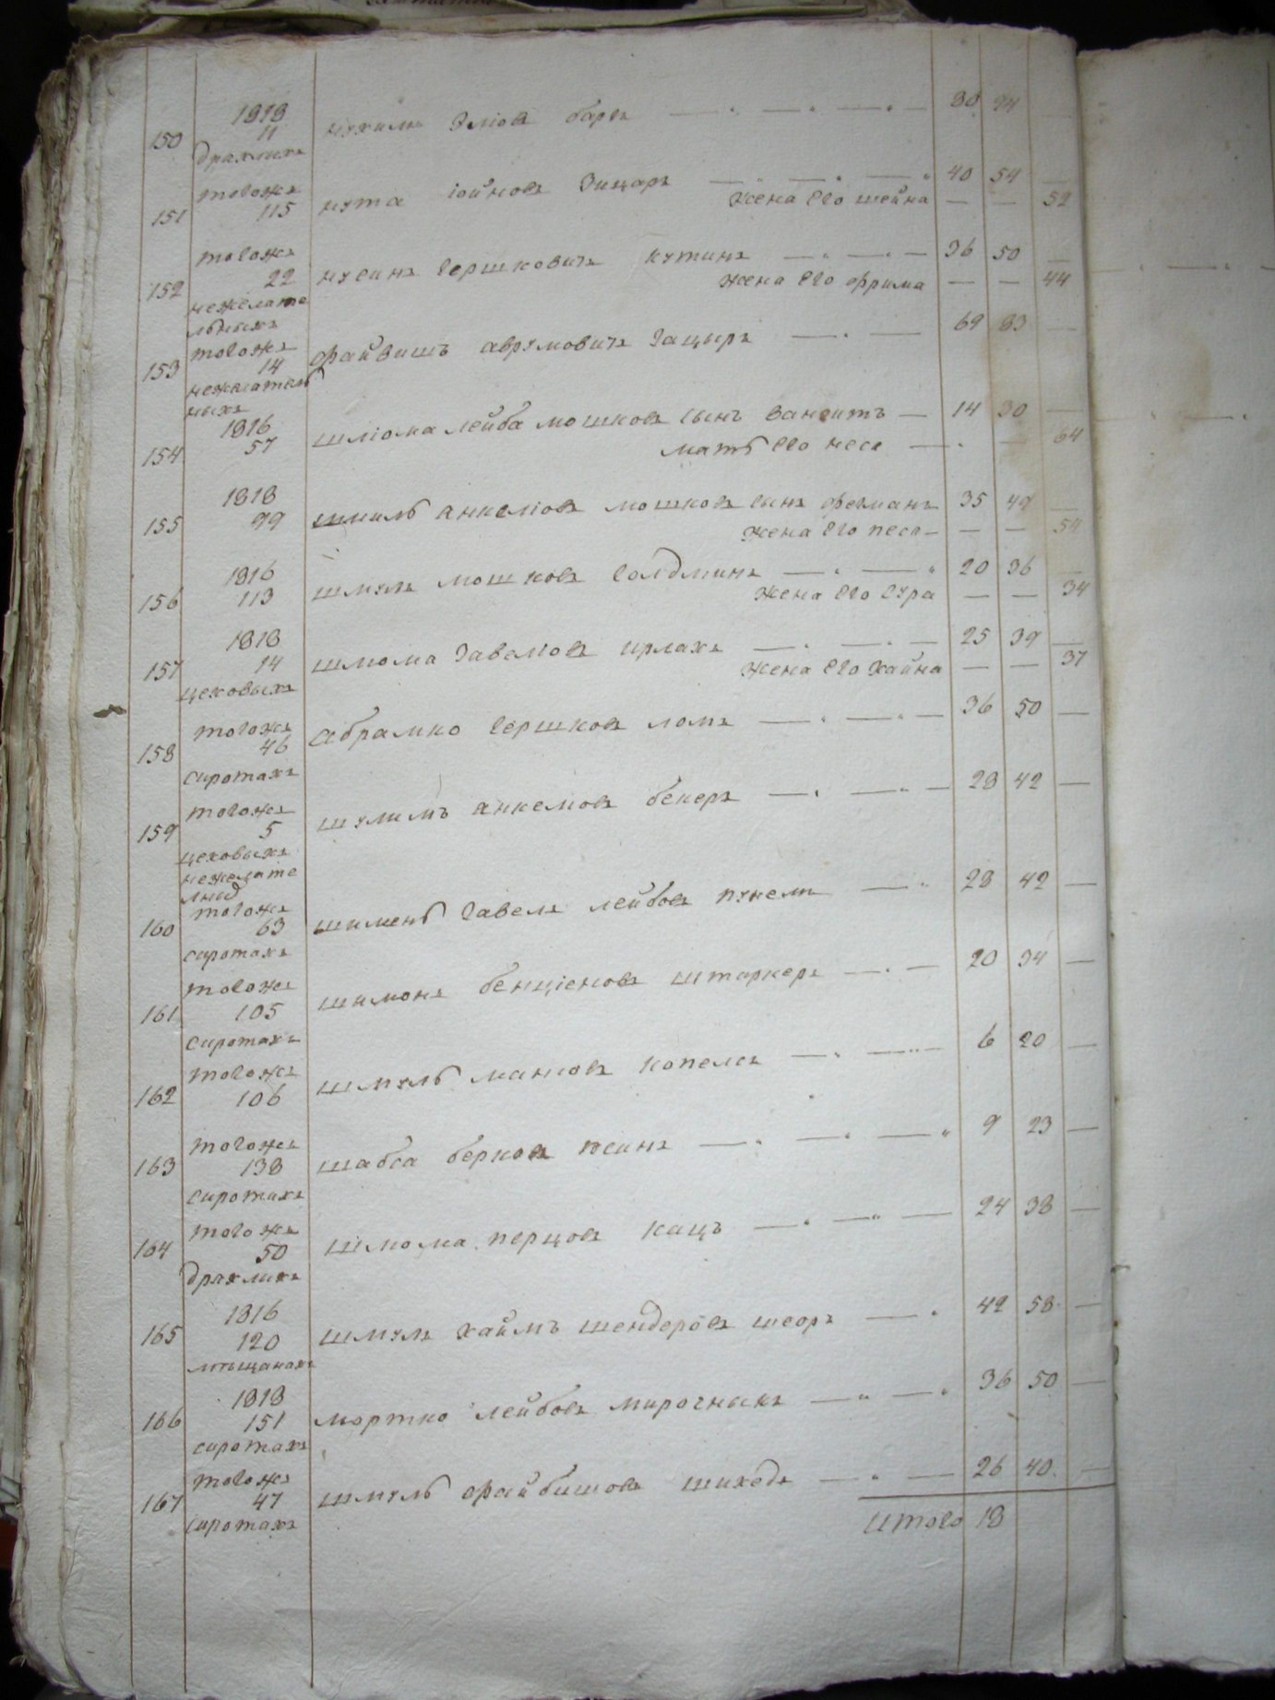 150 1818 11 дряхлихъ Нухимъ Элiовъ баръ 80 94
151 тогожъ 115 Нута Iойновъ Зицаръ 40 54
жена его шейна 52
152 тогожъ 22 нежелательныхъ Нусинъ Гершковичъ кутинъ 36 50
жена его фрима 44
153 тогожъ 14 Файвишъ аврумовичъ Гацыръ 69 83
154 1816 57 Шлiома лейба мошковъ сынъ 14 30
мать его неся 64
155 1818 99 Шмиль анкелiовъ мошковъ сынъ 35 49
жена его песя 54
156 1816 113 Шмуль мошковъ Голдминъ 20 36
жена его сура 34
157 1818 14 цеховыхъ Шлиома Гавелiовъ ирлахъ 25 39
жена его Хайна 37
158 тогожъ 46 сиротахъ Абрамко Гершковъ ломъ 36 50
159 тогожъ 5 цеховыхъ Шулимъ анкелiовъ бекеръ 28 42
160 тогожъ 63 сиротахъ Шименъ Гавель лейбовъ 28 42
161 тогожъ 105 сиротахъ Шимонъ бенцiеновъ штаркеръ 20 34
162 тогожъ 106 Шмуль манiовъ копелсъ 6 20
163 тогожъ 138 сиротахъ Шабса берковъ 9 23
164 тогожъ 50 дряхлихъ Шлиома перцовъ кацъ 24 38
165 1816 120 мѣщанахъ Шмуль хаимъ шендеровъ 42 58
166 1818 151 сиротахъ Мортко лейбовъ мирочникъ 36 50
167 тогожъ 47 сиротахъ Шмуль файбишовъ 26 40
Итого 18